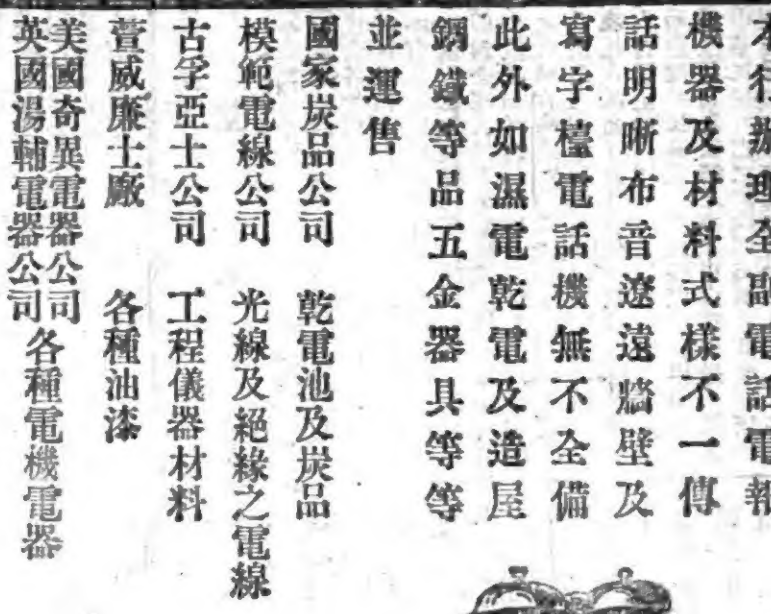 本行辦理全副電話電報
機器及材料式樣不一傳
話明晰布音遼遠牆壁及
寫字檯電話機無不全備
此外如濕電乾電及造屋
鋼鐵等品五金器具等等
並運售
國家炭品公司 乾電池及炭品
模範電線公司 光線及絕緣之電線
古孚亞士公司 工程儀器材料
萱威廉士廠 各種油漆
美國奇異電器公司
英國湯輔電器公司
各種電機電器